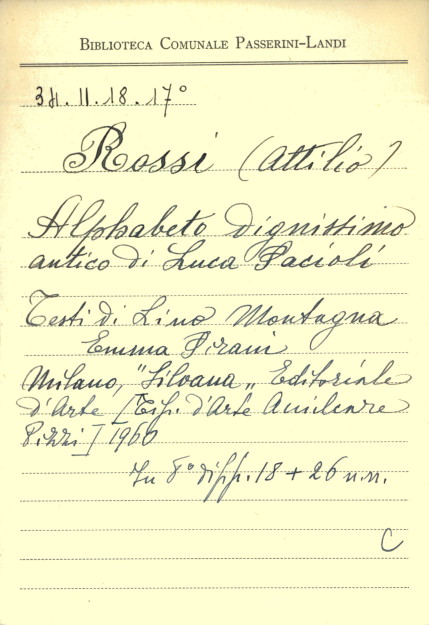 BIBLIOTECA COMUNALE PASSERINI-LANDI
3H.II.18.17°
Rossi (Attilio)
Alphabeto dignissimo
antico di Luca Pacioli
Testi di Lino Montagna
Emma Pirani
Milano, "Silvana„ Editoriale
d'Arte [Tip. d'Arte Amilcare
Pizzi] 1960
In 8° di pp. 18 + 26 n.n.
C